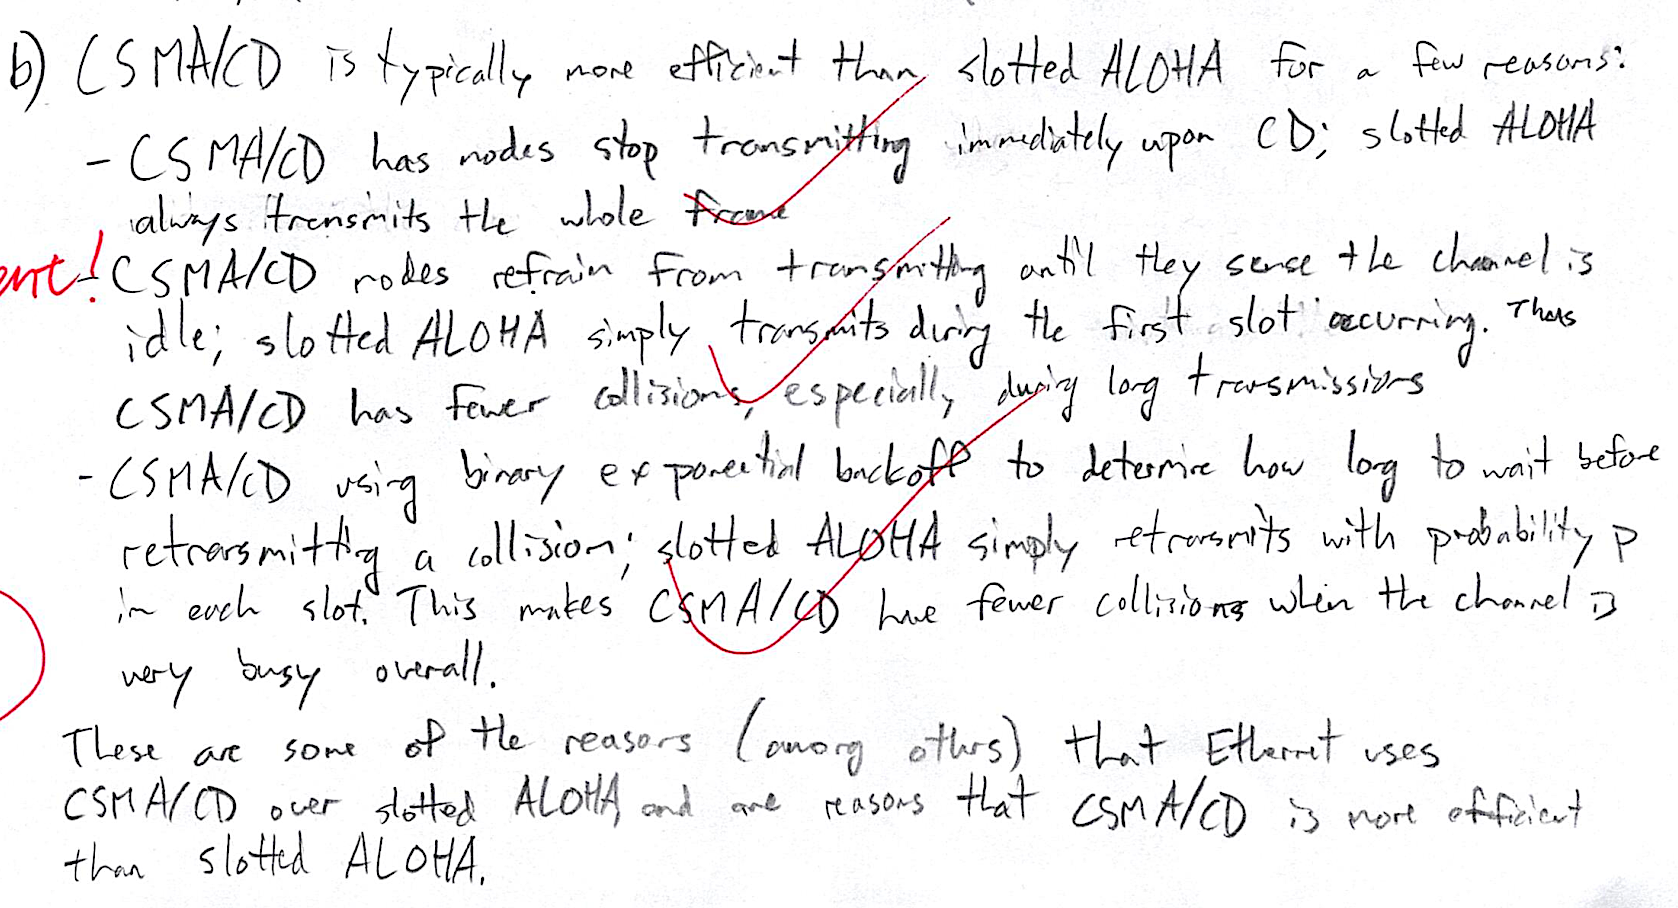 b) CSMA/CD is typically more efficient than slotted ALOHA for a few reasons:
- CSMA/CD has nodes stop transmitting immediately upon CD; slotted ALOHA
always transmits the whole frame
ent! - CSMA/CD nodes refrain from transmitting until they sense the channel is
idle; slotted ALOHA simply transmits during the first slot occurring. Thus
CSMA/CD has fewer collisions, especially during long transmissions
- CSMA/CD using binary exponential backoff to determine how long to wait before
retransmitting a collision; slotted ALOHA simply retransmits with probability p
in each slot. This makes CSMA/CD have fewer collisions when the channel is
very busy overall.
These are some of the reasons (among others) that Ethernet uses
CSMA/CD over slotted ALOHA, and are reasons that CSMA/CD is more efficient
than slotted ALOHA.